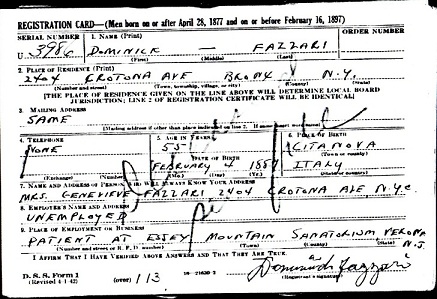 REGISTRATION CARD—(Men born on or after April 28, 1877 and on or before February 16, 1897)
SERIAL NUMBER 1. NAME (Print)
U DOMINICK — FAZZARI
(First) (Middle) (Last)
2. PLACE OF RESIDENCE (Print)
2404 CROTONA AVE BRONX N.Y.
(Number and street) (Town, township, village, or city) (County) (State)
[THE PLACE OF RESIDENCE GIVEN ON THE LINE ABOVE WILL DETERMINE LOCAL BOARD
JURISDICTION; LINE 2 OF REGISTRATION CERTIFICATE WILL BE IDENTICAL]
3. MAILING ADDRESS
SAME
[Mailing address if other than place indicated on line 2. If same insert word same]
4. TELEPHONE 5. AGE IN YEARS 6. PLACE OF BIRTH
NONE 55 CITANOVA
DATE OF BIRTH (Town or county)
FEBRUARY 4 1887 ITALY
(Exchange) (Number) (Mo.) (Day) (Yr.) (State or country)
7. NAME AND ADDRESS OF PERSON WHO WILL ALWAYS KNOW YOUR ADDRESS
MRS. GENEVIEVE FAZZARI 2404 CROTONA AVE N.Y.C.
8. EMPLOYER'S NAME AND ADDRESS
UNEMPLOYED
9. PLACE OF EMPLOYMENT OR BUSINESS
PATIENT AT ESSEX MOUNTAIN SANATORIUM VERONA N.J.
(Number and street or R. F. D. number) (Town) (County) (State)
I AFFIRM THAT I HAVE VERIFIED ABOVE ANSWERS AND THAT THEY ARE TRUE.
D. S. S. Form 1
(Revised 4-1-42) (over) 113 16—21630-2 Dominick Fazzari
(Registrant's signature)